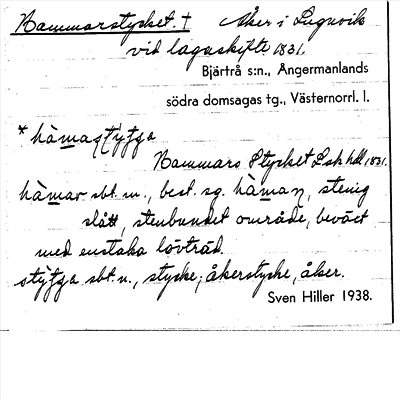 Hammarstycket. † Åker i Lugnvik
vid lagaskifte 1831.
Bjärtrå s:n., Ångermanlands
södra domsagas tg., Västernorrl. l.
Hammars Stycket Lsk hdl 1831.
hàmar sbt. m., best. sg. , stenig
slått, stenbundet område, beväxt
med enstaka lövträd.
sbt. n., stycke; åkerstycke, åker.
Sven Hiller 1938.